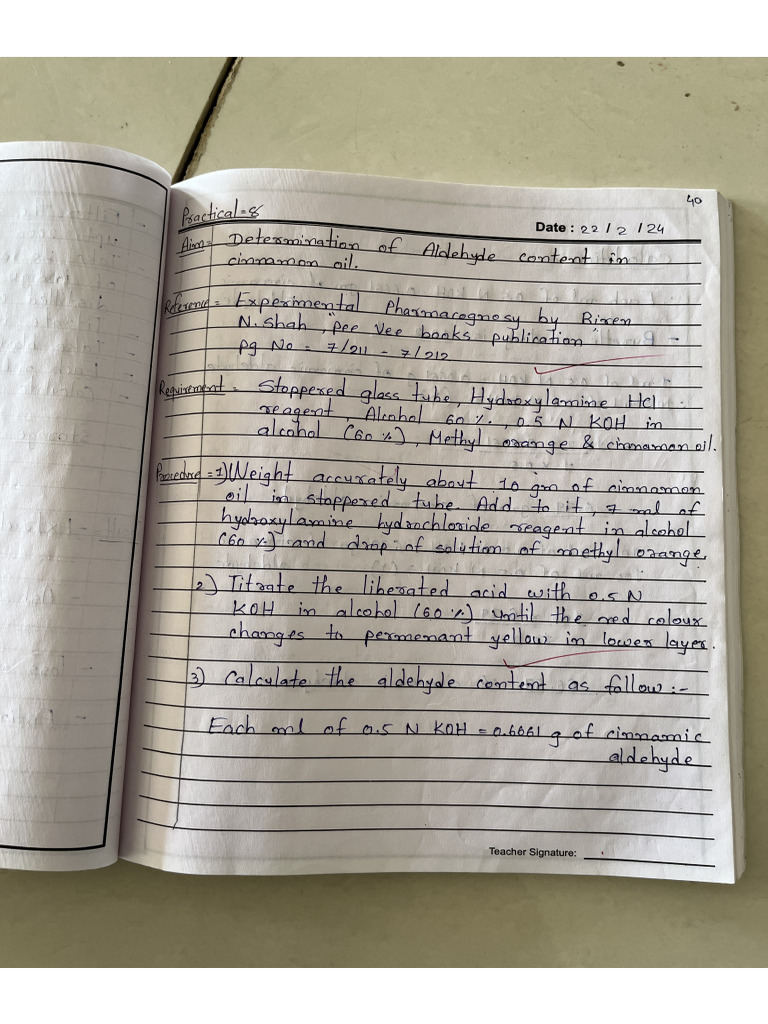 40
Practical=8
Date : 22 / 2 / 24
Aim= Determination of Aldehyde content in
cinnamon oil.
Reference= Experimental Pharmacognosy by Biren
N. Shah, "Pee Vee books publication"
Pg No = 7/211 - 7/212
Requirement= Stoppered glass tube, Hydroxylamine HCl
reagent, Alcohol 60 %, 0.5 N KOH in
alcohol (60 %), Methyl orange & cinnamon oil.
Procedure=1) Weight accurately about 10 gm of cinnamon
oil in stoppered tube. Add to it, 7 ml of
hydroxylamine hydrochloride reagent in alcohol
(60 %) and drop of solution of methyl orange.
2) Titrate the liberated acid with 0.5 N
KOH in alcohol (60 %) until the red colour
changes to permenant yellow in lower layer.
3) Calculate the aldehyde content as follow :-
Each ml of 0.5 N KOH = 0.6661 g of cinnamic
aldehyde
Teacher Signature: